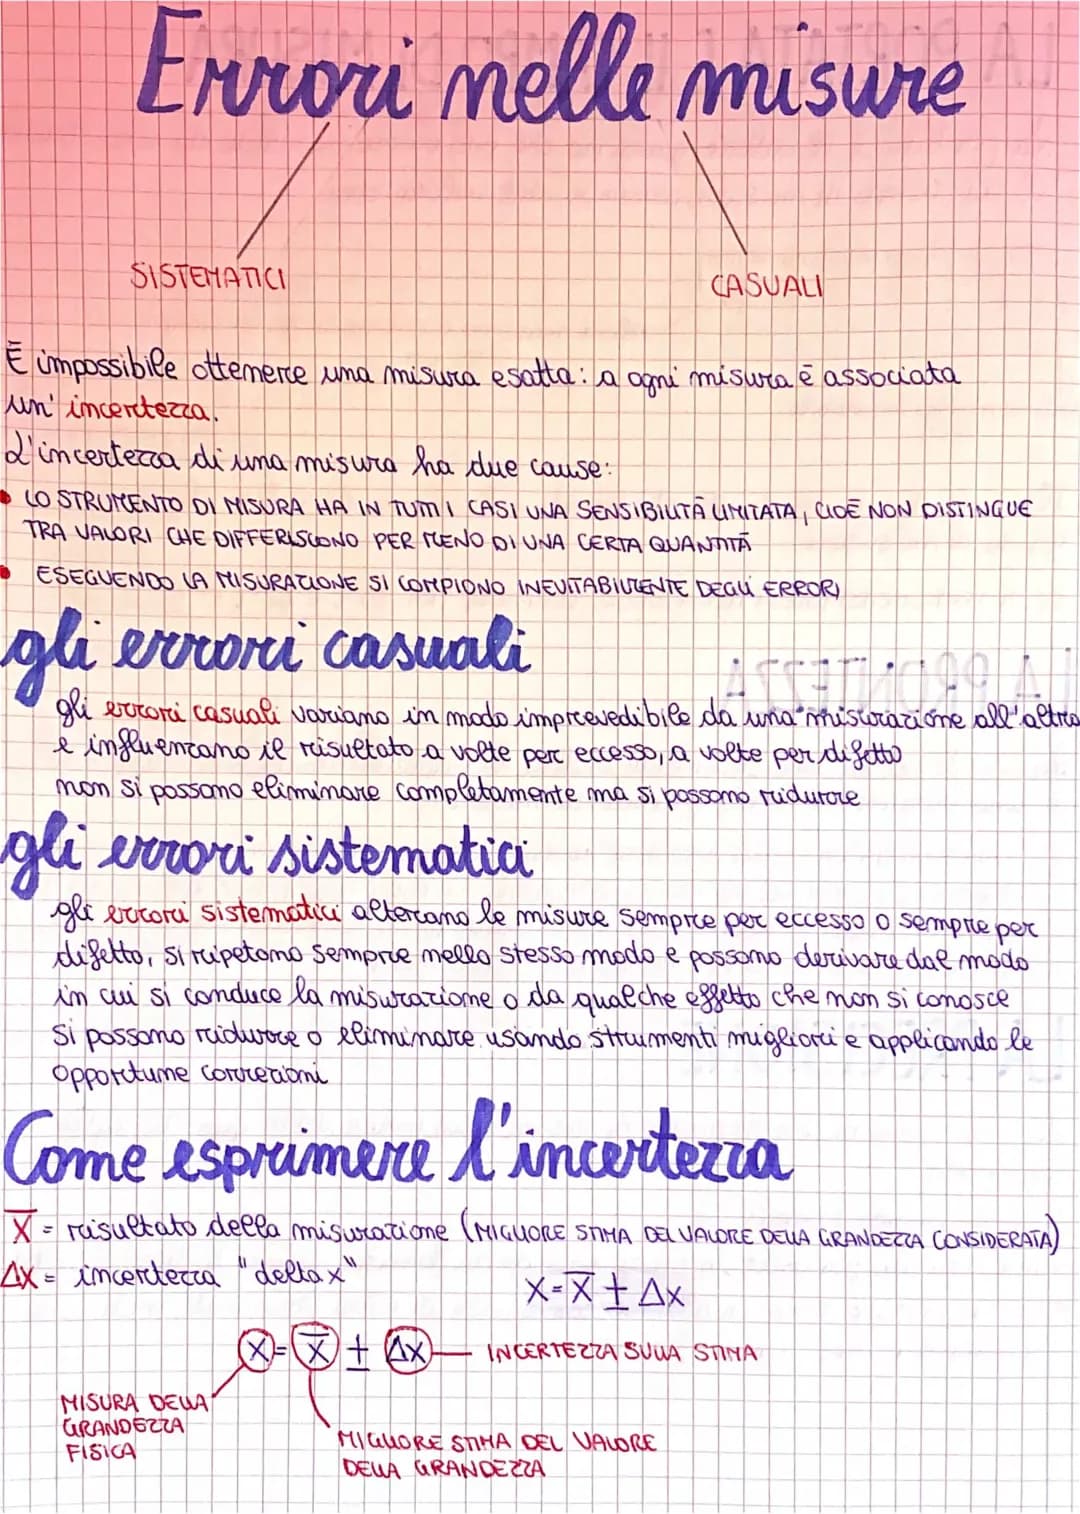 Errori nelle misure
SISTEMATICI
CASUALI
È impossibile ottenere una misura esatta: a ogni misura è associata
un' incertezza.
L'incertezza di una misura ha due cause:
• LO STRUMENTO DI MISURA HA IN TUTTI I CASI UNA SENSIBILITÀ LIMITATA, CIOÈ NON DISTINGUE
TRA VALORI CHE DIFFERISCONO PER MENO DI UNA CERTA QUANTITÀ
• ESEGUENDO LA MISURAZIONE SI COMPIONO INEVITABILMENTE DEGLI ERRORI
gli errori casuali
LA PRONTEZZA
gli errori casuali variano in modo imprevedibile da una misurazione all'altra
e influenzano il risultato a volte per eccesso, a volte per difetto
non si possono eliminare completamente ma si possono ridurre
gli errori sistematici
gli errori sistematici alterano le misure sempre per eccesso o sempre per
difetto, si ripetono sempre nello stesso modo e possono derivare dal modo
in cui si conduce la misurazione o da qualche effetto che non si conosce
si possono ridurre o eliminare usando strumenti migliori e applicando le
opportune correzioni
Come esprimere l'incertezza
X̅ = risultato della misurazione (MIGLIORE STIMA DEL VALORE DELLA GRANDEZZA CONSIDERATA)
ΔX = incertezza "delta x"
X = X̅ ± Δx
X = X̅ ± ΔX
INCERTEZZA SULLA STIMA
MISURA DELLA
GRANDEZZA
FISICA
MIGLIORE STIMA DEL VALORE
DELLA GRANDEZZA